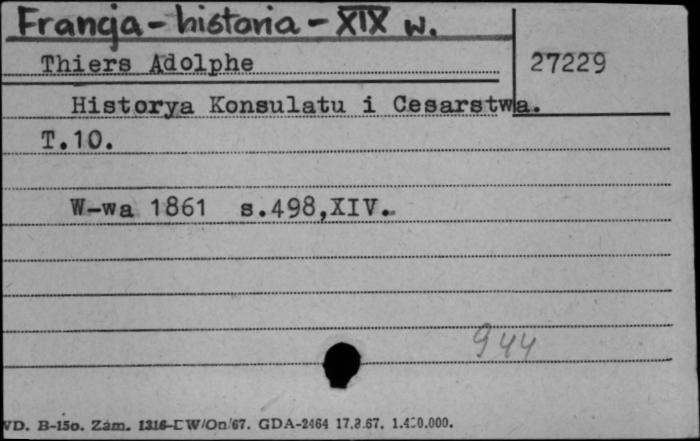 Francja - historia - XIX w.
Thiers Adolphe
27229
Historya Konsulatu i Cesarstwa.
T.10.
W-wa 1861 s.498,XIV.
944
WD. B-15o. Zam. 1316-LW/On/67. GDA-2464 17.8.67. 1.4